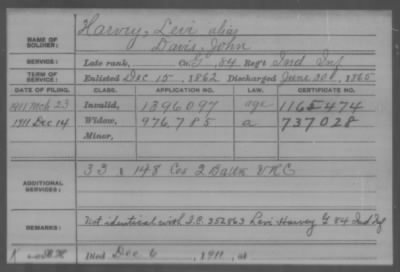 NAME OF SOLDIER: Harvey, Levi alias
Davis, John
SERVICE: Late rank, Co. G, 84 Reg't Ind Inf
TERM OF SERVICE: Enlisted Dec 15, 1862 Discharged June 20, 1865
DATE OF FILING. CLASS. APPLICATION NO. LAW. CERTIFICATE NO.
1901 Mch 23 Invalid, 1396097 age 1165474
1911 Dec 14 Widow, 976,785 a 737028
Minor,
ADDITIONAL SERVICES: 33 & 148 Cos 2 Battn VRC
REMARKS: Not identical with I.C. 352863 Levi Harvey G 84 Ind Inf
Died Dec 6, 1911, at